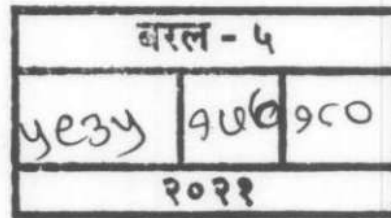 बरल - ५
५९३५ १८०
२०२१